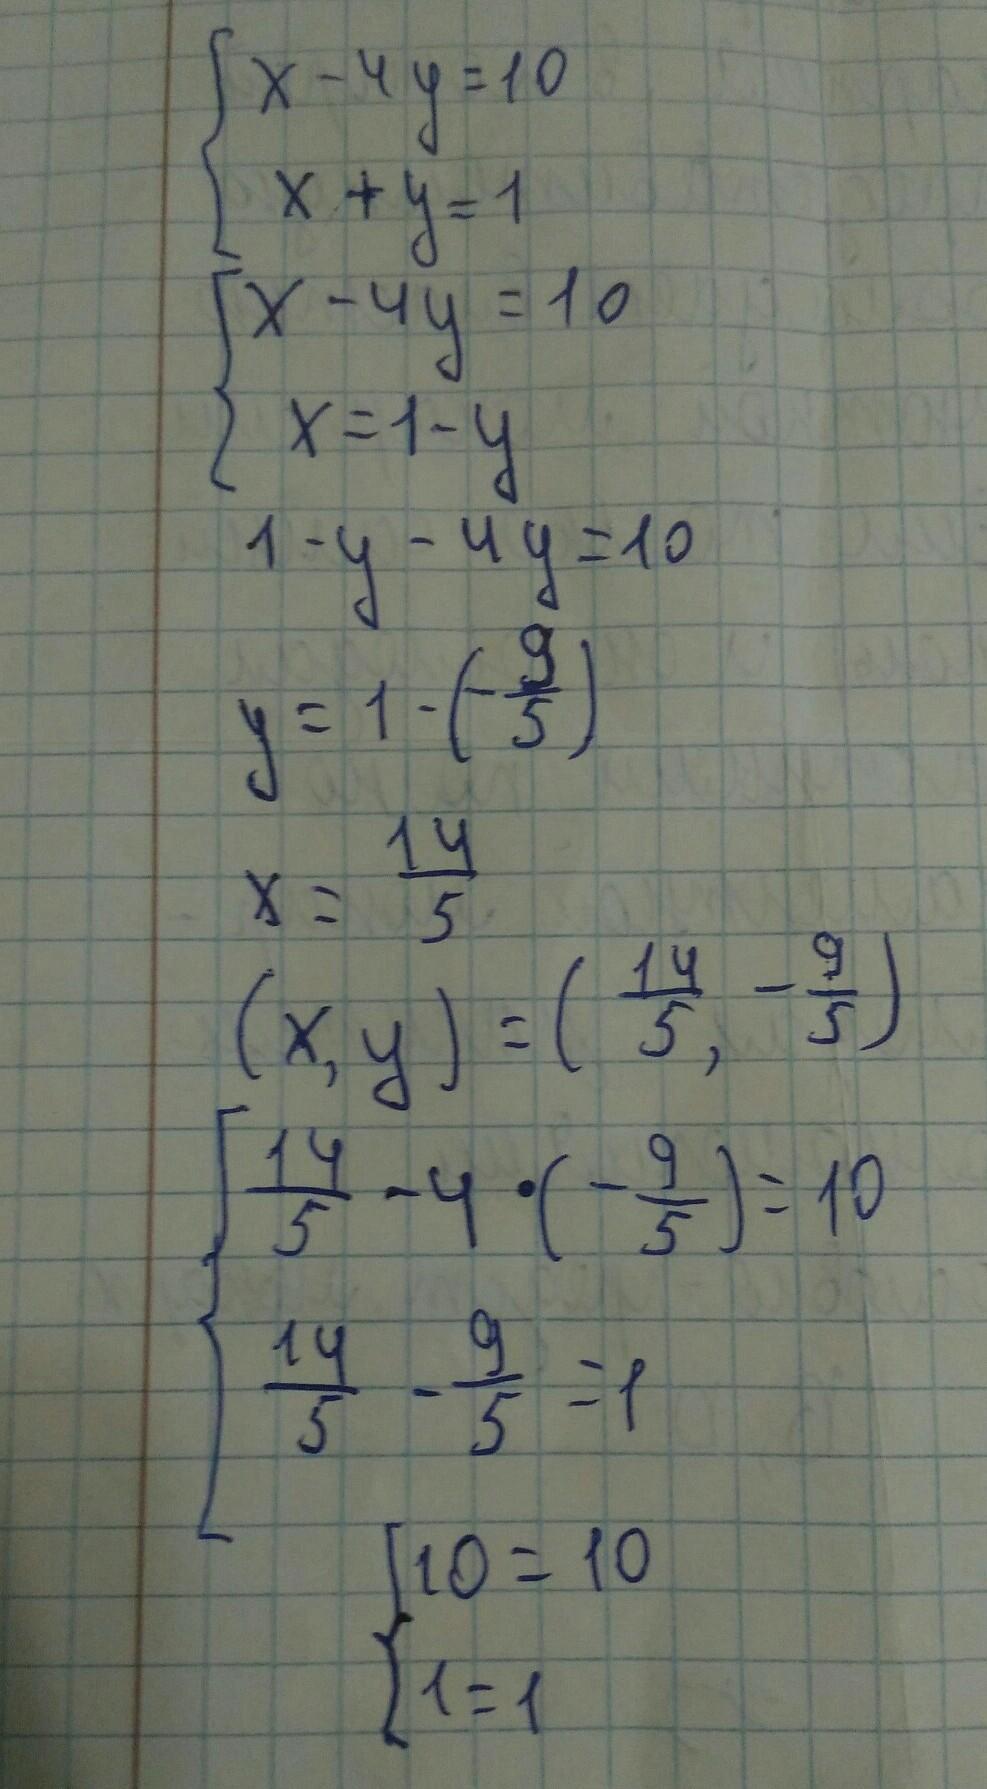 x - 4y = 10
x + y = 1
x - 4y = 10
x = 1 - y
1 - y - 4y = 10
y = 1 - (-9/5)
x = 14/5
(x, y) = (14/5, -9/5)
14/5 - 4 • (-9/5) = 10
14/5 - 9/5 = 1
10 = 10
1 = 1